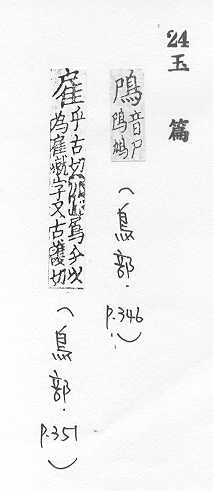 24
玉篇
鳲音尸
鳲鳩
（鳥部．p.346）
雇乎古切鳸今以
為雇僦字又古護切
（鳥部．p.351）